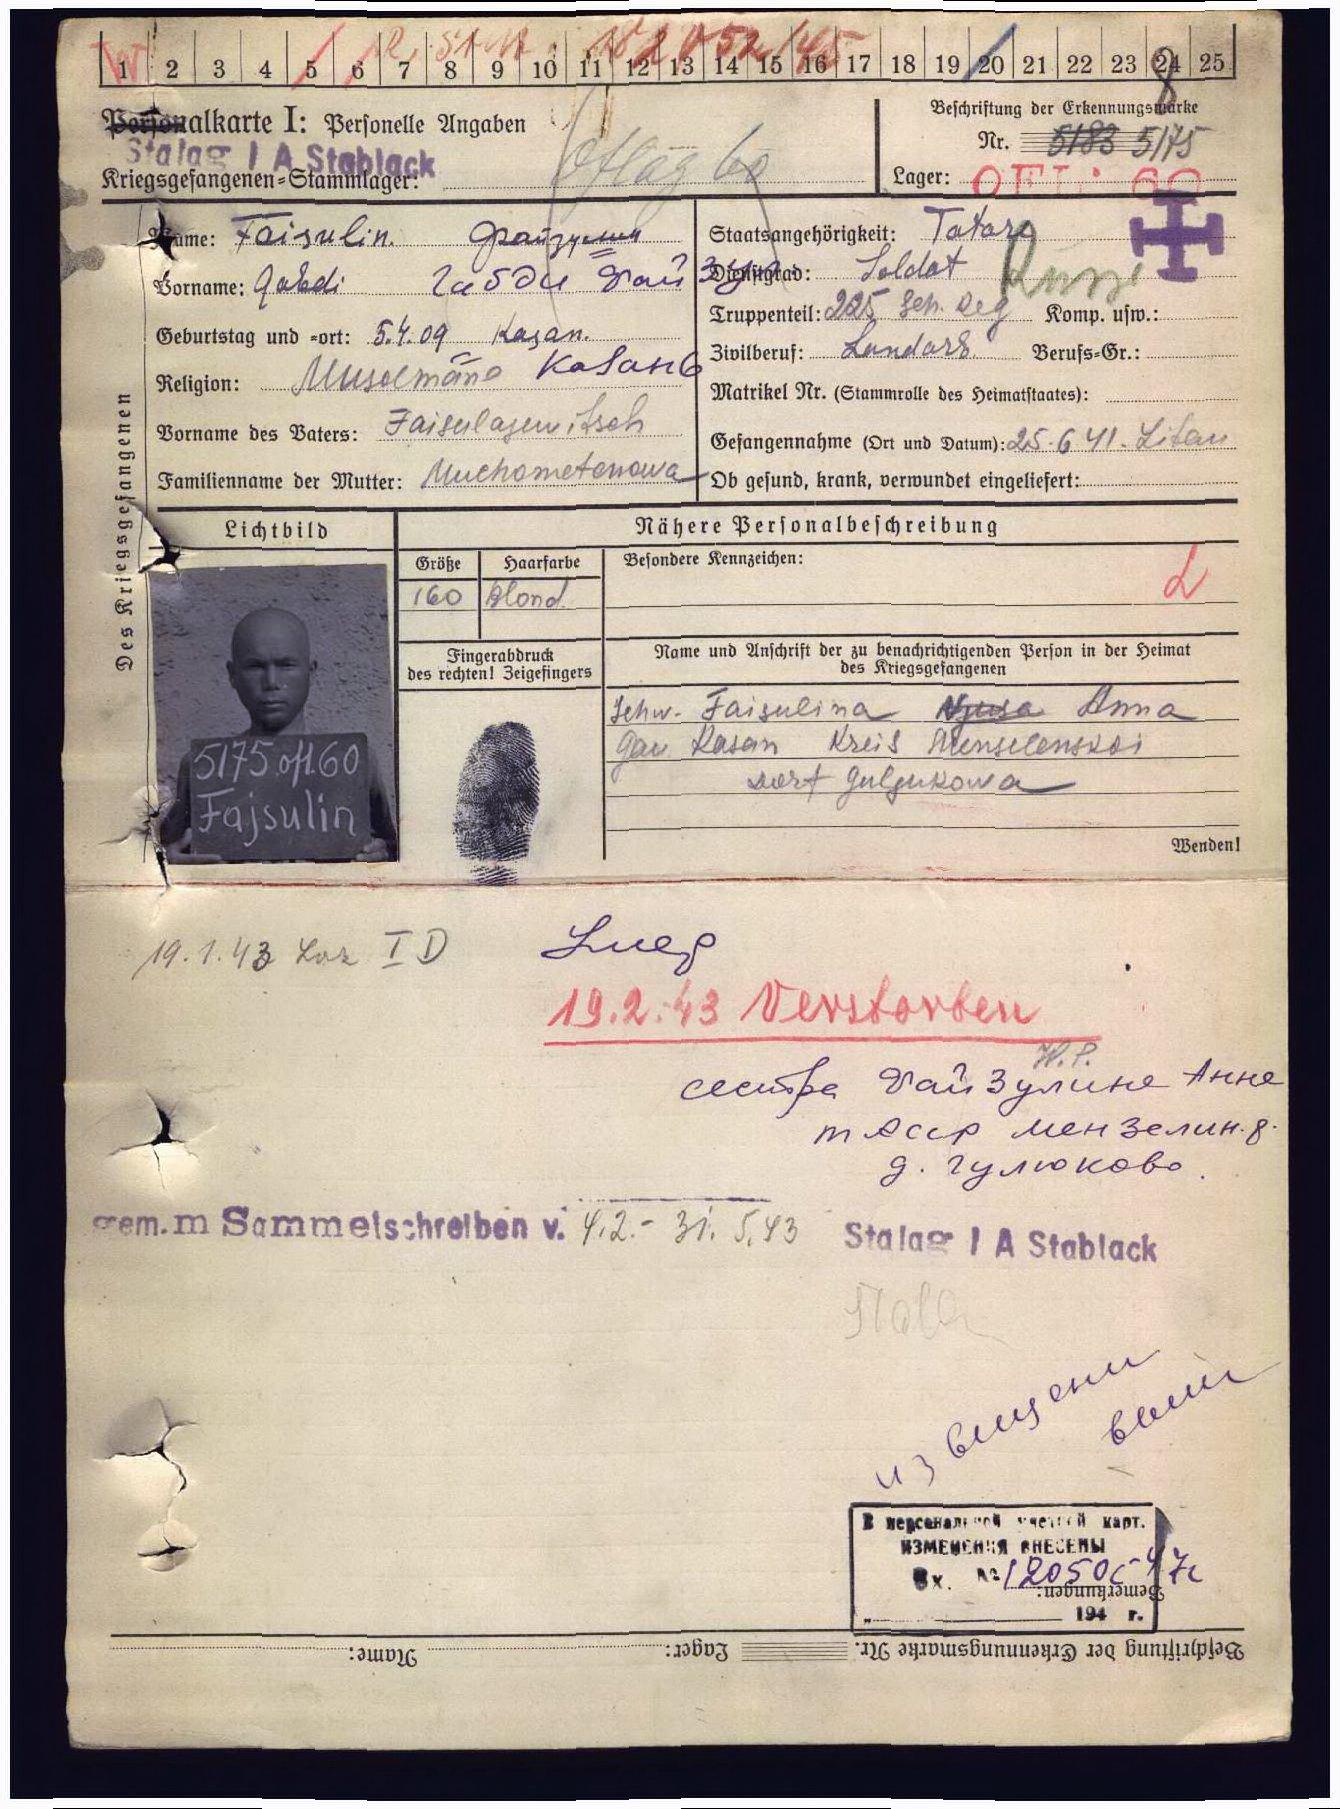 1 2 3 4 5 6 7 8 9 10 11 12 13 14 15 16 17 18 19 20 21 22 23 24 25
W
8
Personalkarte I: Personelle Angaben
Beschriftung der Erkennungsmarke
Nr. 5183 5175
Stalag I A Stablack
Kriegsgefangenen-Stammlager: Oflag 60
Lager: OFL. 60
Des Kriegsgefangenen
Name: Faisulin. Файзулин
Vorname: Gabdi Габди Файзул
Geburtstag und -ort: 5.4.09 Kasan.
Religion: Muselmane Казань
Vorname des Vaters: Faisulagewitsch
Familienname der Mutter: Muchametenowa
Staatsangehörigkeit: Tatare
Russe
Dienstgrad: Soldat
Truppenteil: 225 Sch. Reg Komp. usw.:
Zivilberuf: Landarb. Berufs-Gr.:
Matrikel Nr. (Stammrolle des Heimatstaates):
Gefangennahme (Ort und Datum): 25.6.41. Litau
Ob gesund, krank, verwundet eingeliefert:
Lichtbild
Nähere Personalbeschreibung
Größe Haarfarbe Besondere Kennzeichen:
160 blond
L
Fingerabdruck
des rechten! Zeigefingers
Name und Anschrift der zu benachrichtigenden Person in der Heimat
des Kriegsgefangenen
Schw. Faisulina Anna
Gau Kasan Kreis Menselenskoi
Dorf Gulgukowa
Wenden!
5175 ofl.60
Fajsulin
19.1.43 Laz I D
Умер
19.2.43 Verstorben
W.P.
сестра Файзулине Анне
т АССР Мензелин.р.
д. Гулюково.
gem. m Sammelschreiben v. 4.2.- 31.5.43 Stalag I A Stablack
извещени
выш
В персональной учетной карт.
ИЗМЕНЕНИЯ ВНЕСЕНЫ
Вх. №
Bemerkungen:
194 г.
Beschriftung der Erkennungsmarke Nr. Lager: Name: